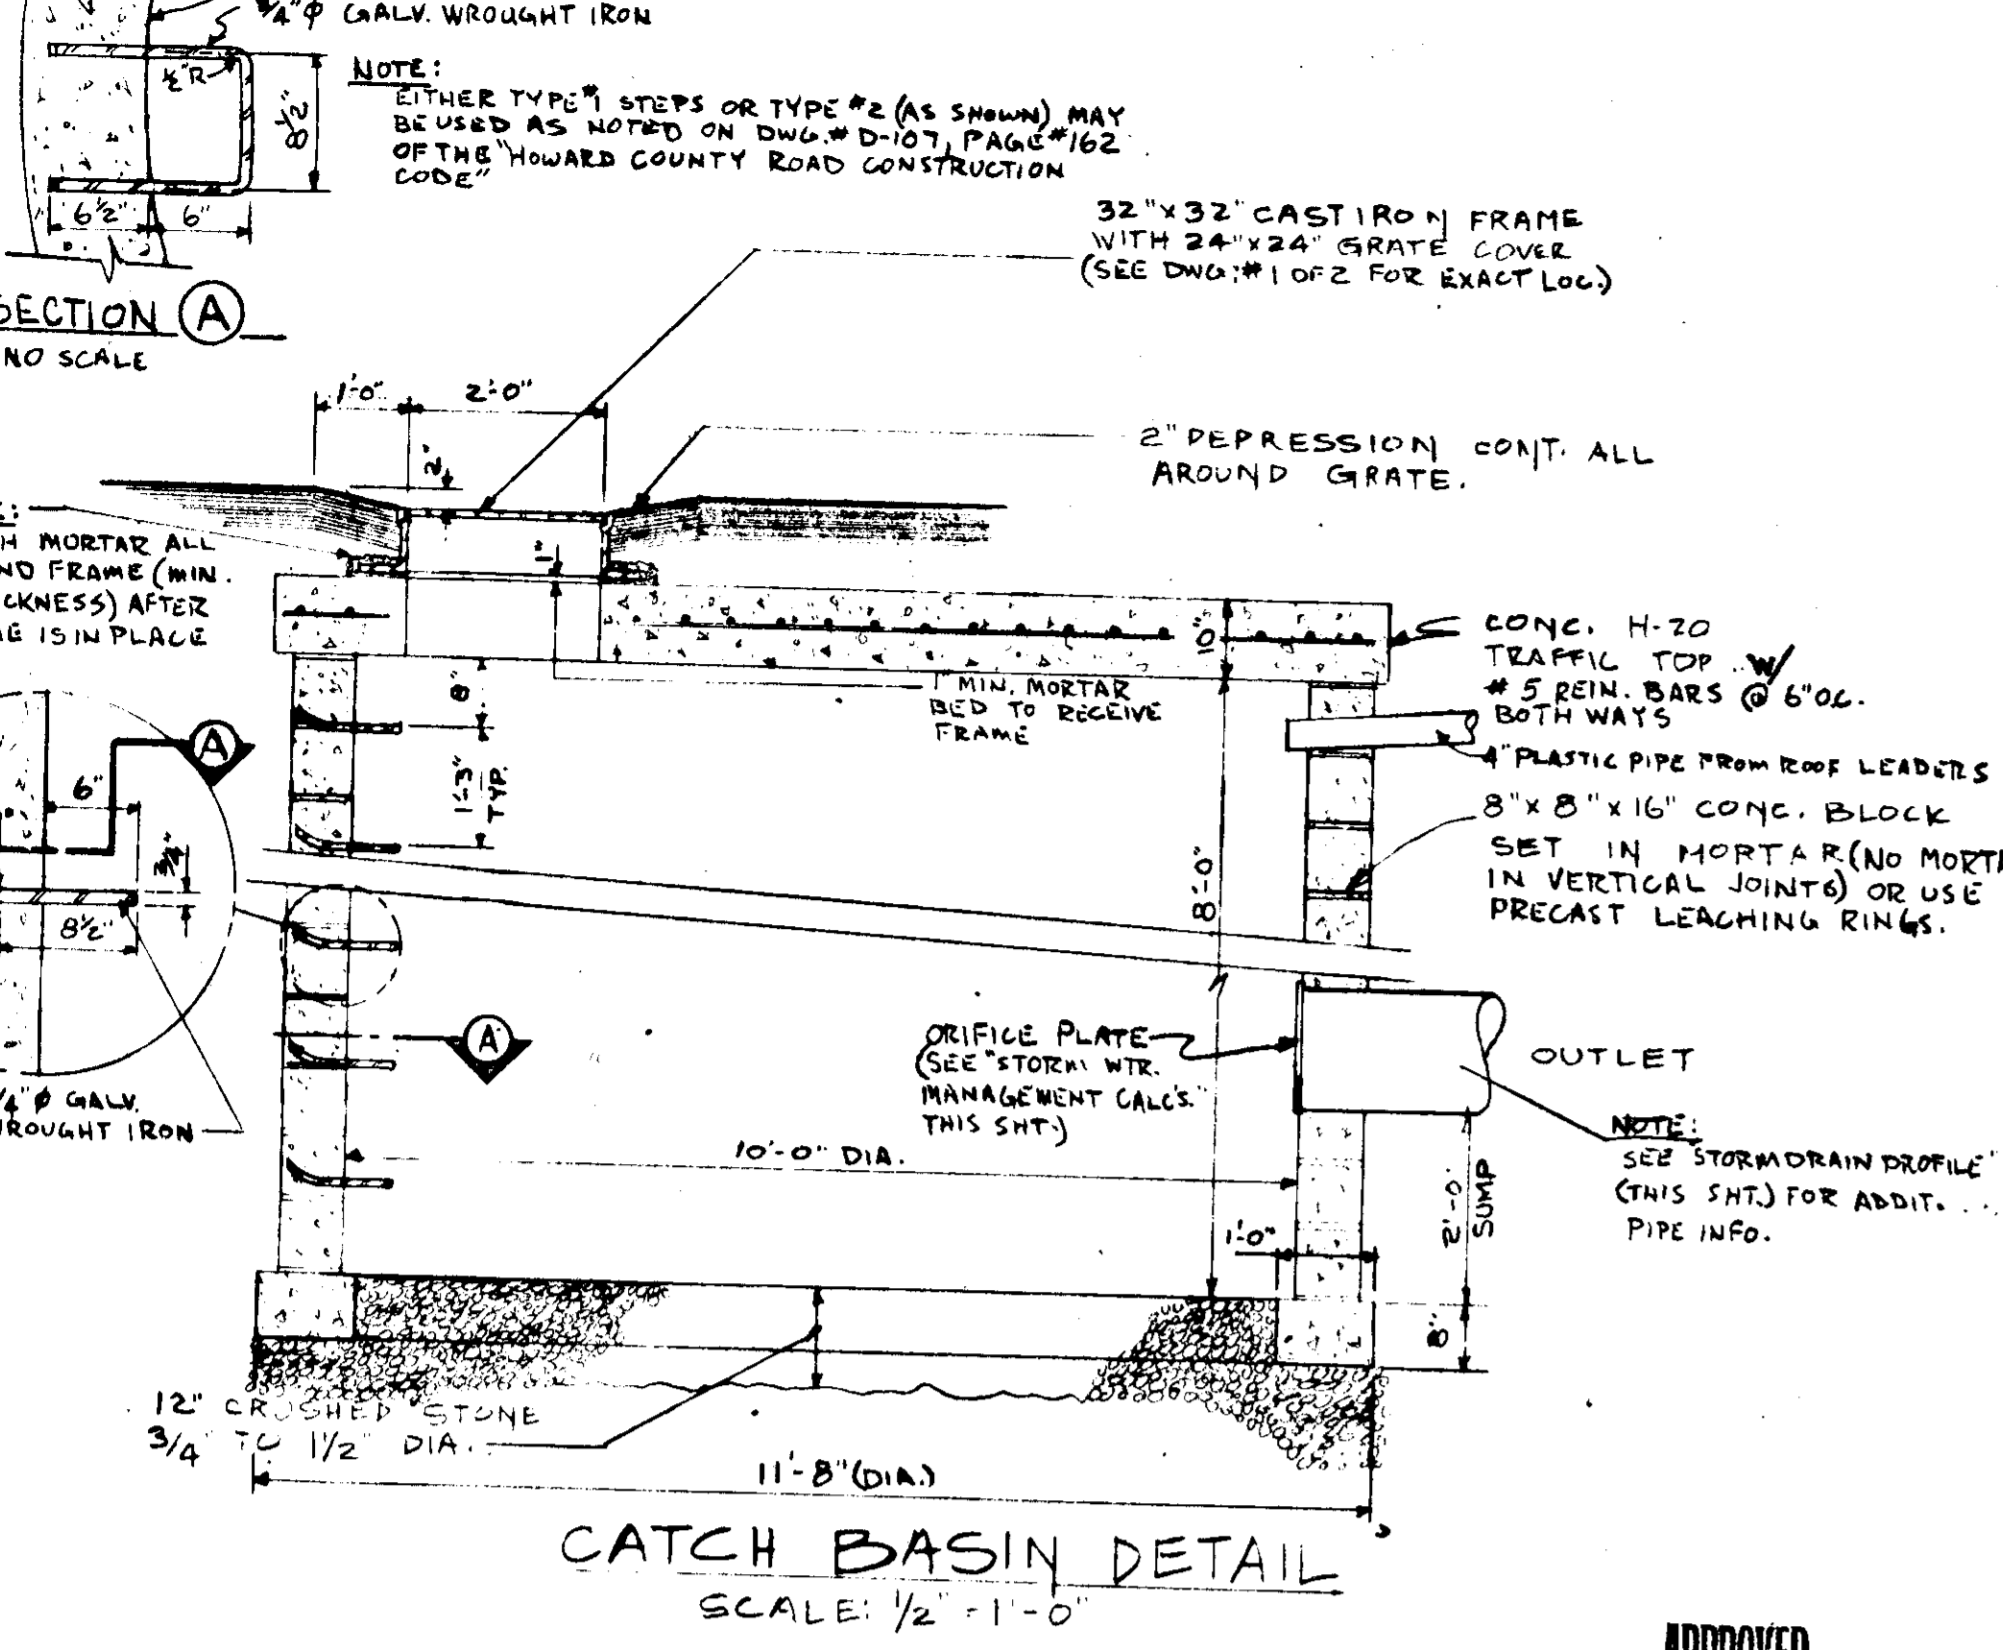 3/4"ø GALV. WROUGHT IRON
1/2"R
8 1/2"
6 1/2" 6"
NOTE:
EITHER TYPE #1 STEPS OR TYPE #2 (AS SHOWN) MAY
BE USED AS NOTED ON DWG.# D-107, PAGE #162
OF THE "HOWARD COUNTY ROAD CONSTRUCTION
CODE"
SECTION A
NO SCALE
32"x32" CAST IRON FRAME
WITH 24"x24" GRATE COVER
(SEE DWG. #1 OF 2 FOR EXACT LOC.)
1'-0" 2'-0"
2"
2" DEPRESSION CONT. ALL
AROUND GRATE.
MORTAR ALL
FRAME (MIN.
AFTER
IS IN PLACE
1"
10"
1" MIN. MORTAR
BED TO RECEIVE
FRAME
CONC. H-20
TRAFFIC TOP W/
# 5 REIN. BARS @ 6" O.C.
BOTH WAYS
4" PLASTIC PIPE FROM ROOF LEADERS
8" x 8" x 16" CONC. BLOCK
SET IN MORTAR (NO
IN VERTICAL JOINTS) OR USE
PRECAST LEACHING RINGS.
8"
1'-3"
TYP.
8'-0"
A
6"
3/4"
8 1/2"
A
ø GALV.
WROUGHT IRON
ORIFICE PLATE
(SEE "STORM WTR.
MANAGEMENT CALC'S."
THIS SHT.)
OUTLET
NOTE:
SEE "STORM DRAIN PROFILE"
(THIS SHT.) FOR ADDIT.
PIPE INFO.
10'-0" DIA.
1'-0"
2'-0"
SUMP
8"
12" CRUSHED STONE
3/4" TO 1 1/2" DIA.
11'-8" (DIA.)
CATCH BASIN DETAIL
SCALE: 1/2" = 1'-0"
APPROVED